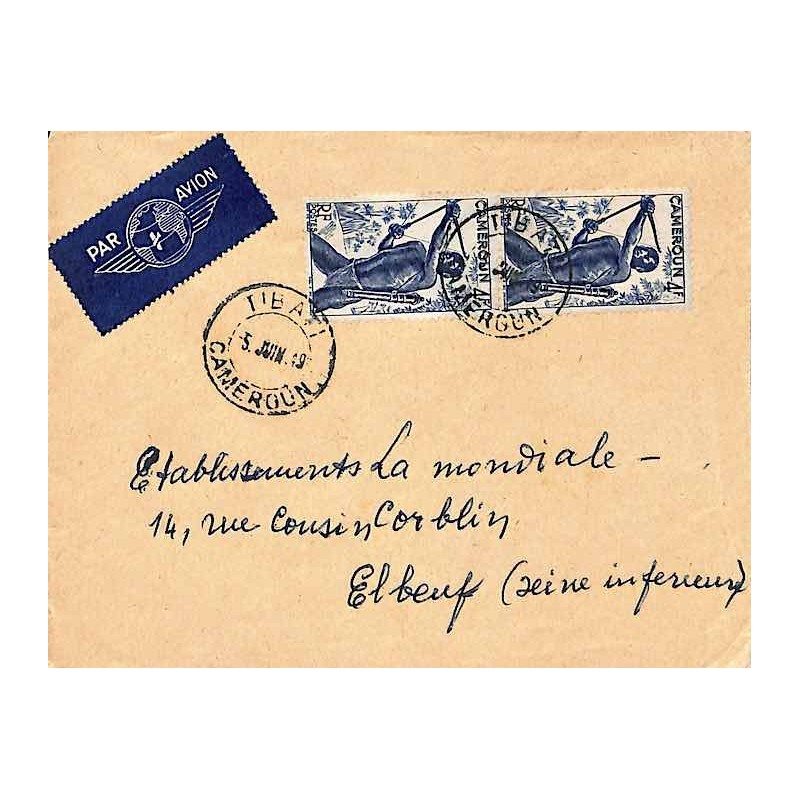 PAR AVION
RF CAMEROUN 4F
POSTES
RF CAMEROUN 4F
TIBATI
CAMEROUN
TIBATI
5. JUIN. 49
CAMEROUN
Etablissements La mondiale –
14, rue Cousin Corblin
Elbeuf (seine inferieure)